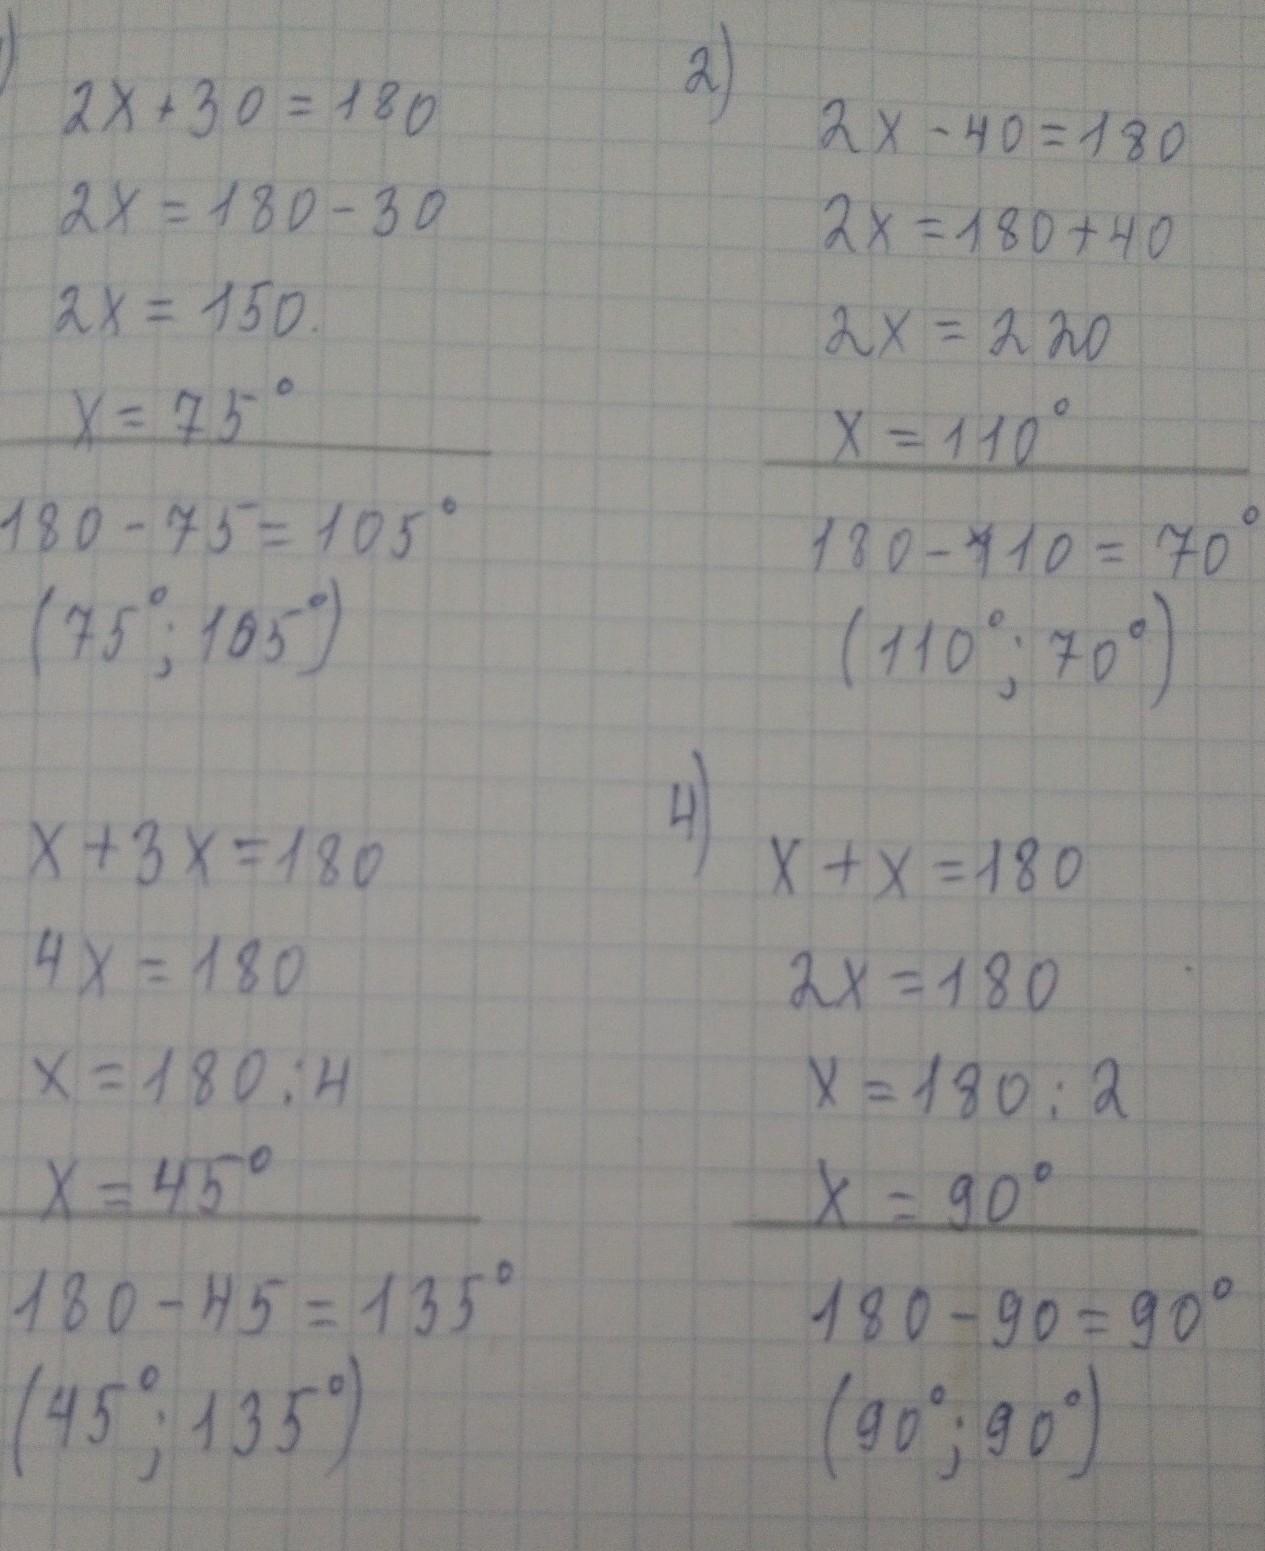 )
2x+30=180
2x=180-30
2x=150.
x=75°
180-75=105°
(75°; 105°)
2)
2x-40=180
2x=180+40
2x=220
x=110°
180-110=70°
(110°; 70°)
x+3x=180
4x=180
x=180:4
x=45°
180-45=135°
(45°; 135°)
4)
x+x=180
2x=180
x=180:2
x=90°
180-90=90°
(90°; 90°)